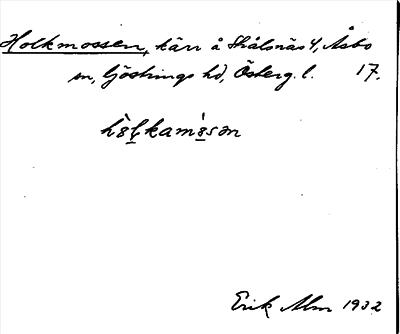 Holkmossen, kärr å Skålsnäs 4, Åsbo
sn, Göstrings hd, Österg. l. 17.
Erik Alm 1932